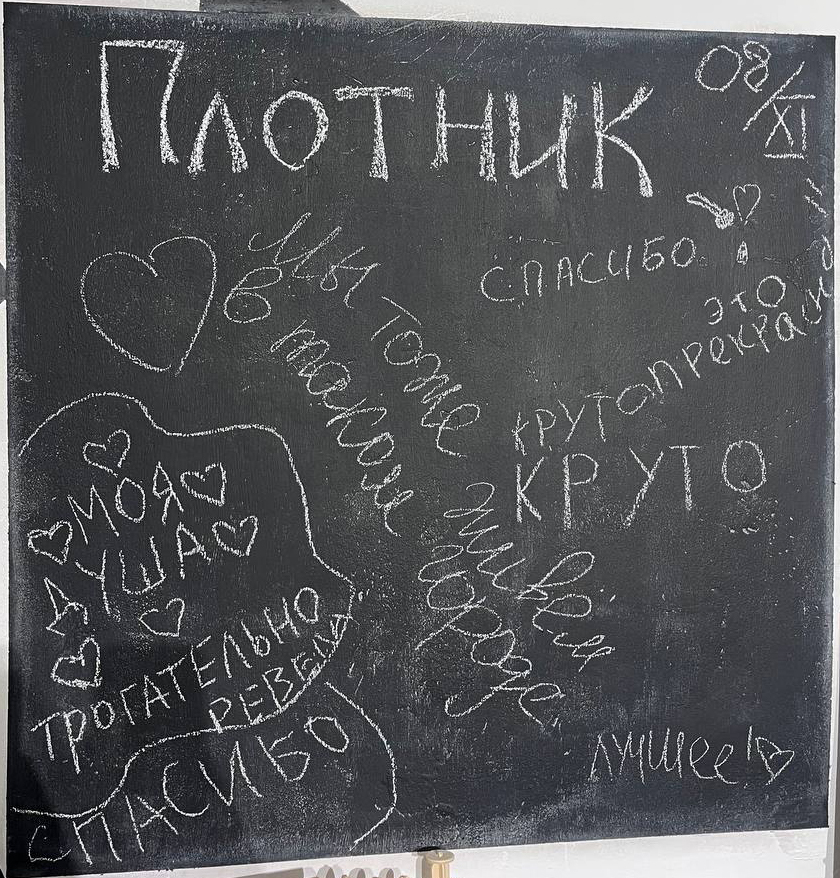 ПЛОТНИК
08/XI
СПАСИБО
Мы тоже живем
в таком городе
ЭТО
ПРЕКРАСН
КРУТО
КРУТО
МОЯ
ДУША
ТРОГАТЕЛЬНО
РЕВЕЛА
СПАСИБО
ЛУЧШЕЕ!